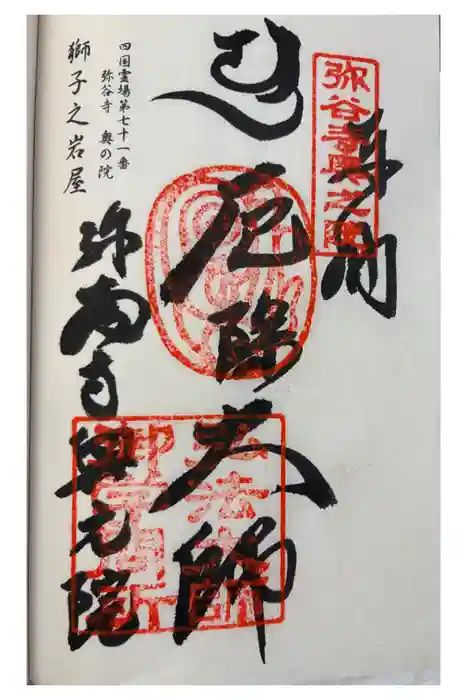 弥谷寺奥之院
奉拝
厄除大師
弥谷寺奥之院
弘法大師
御学問所
四国霊場第七十一番
弥谷寺 奥の院
獅子之岩屋